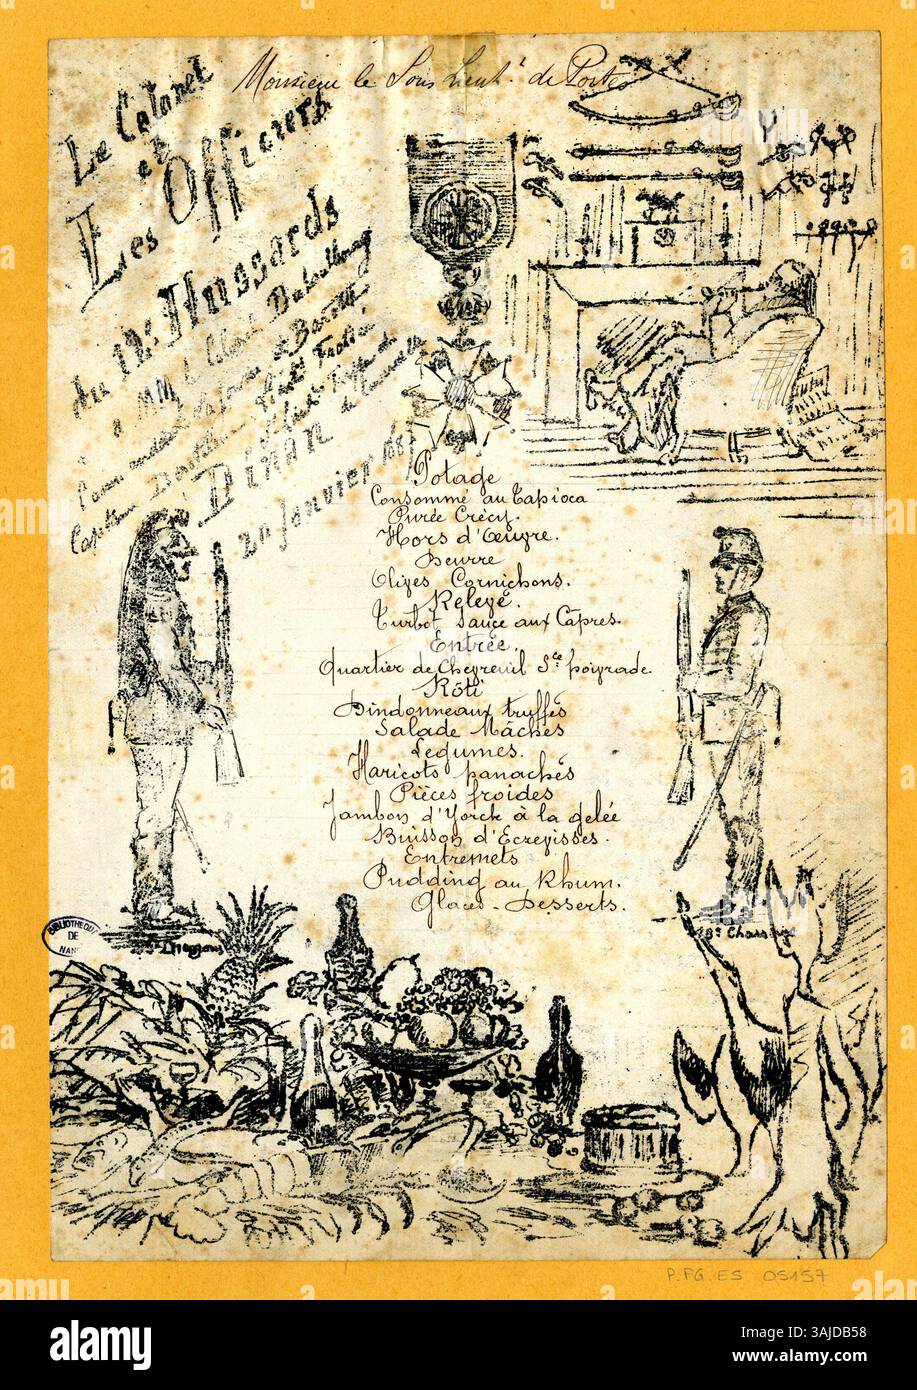 Monsieur le Sous Lieutt de Portes
Le Colonel
et
Les Officiers
du 13e Hussards
à MM le Colonel
Commandant de
Capitaine
DINAN
20 Janvier 1887
Potage
Consommé au Tapioca
Purée Crécy.
Hors d'Œuvre.
Beurre
Olives Cornichons.
Relevé.
Turbot sauce aux Câpres.
Entrée.
Quartier de Chevreuil Sce poivrade
Rôti
Dindonneaux truffés
Salade Mâches
Légumes.
Haricots panachés
Pièces froides
Jambon d'Yorck à la gelée
Buisson d'Ecrevisses.
Entremets
Pudding au Rhum.
Glaces - Desserts.
Dragons
18e Chasseurs
BIBLIOTHEQUE
DE
NANCY
P.FG.ES 05157
alamy
Image ID: 3AJDB58
www.alamy.com